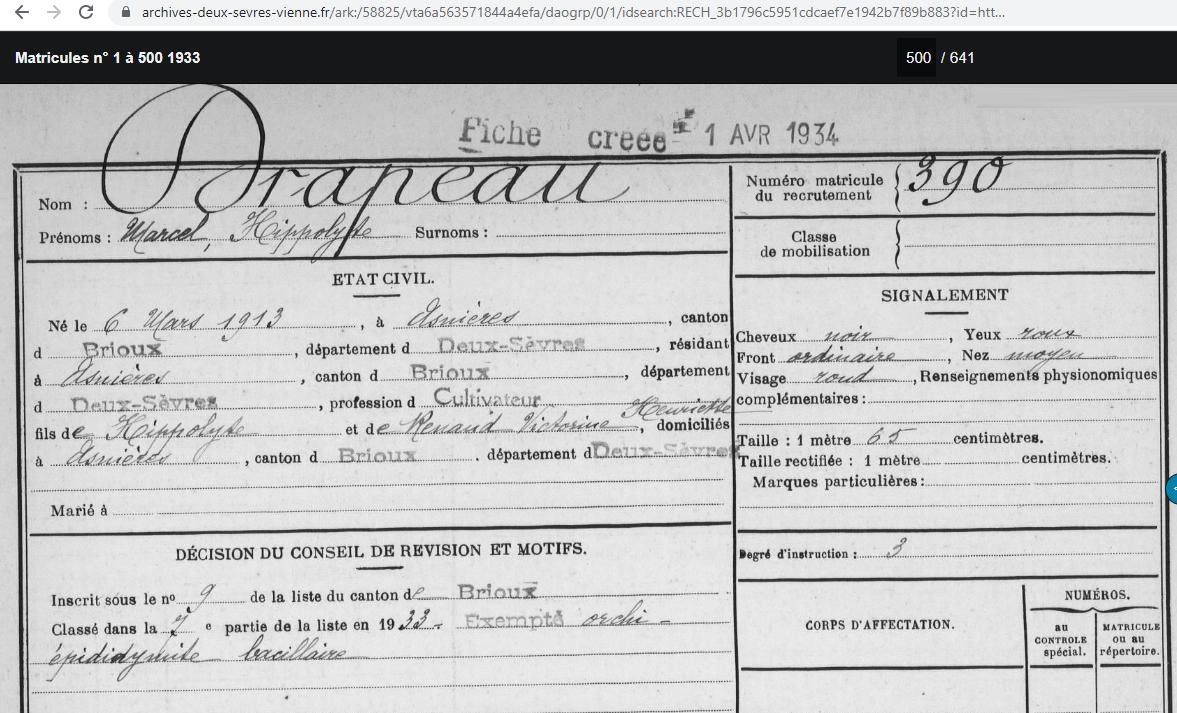 archives-deux-sevres-vienne.fr/ark:/58825/vta6a563571844a4efa/daogrp/0/1/idsearch:RECH_3b1796c5951cdcaef7e1942b7f89b883?id=htt...
Matricules n° 1 à 500 1933
500 / 641
Fiche creee 1 AVR 1934
Nom : Drapeau
Prénoms : Marcel, Hippolyte Surnoms :
Numéro matricule du recrutement 390
Classe de mobilisation
ETAT CIVIL.
Né le 6 Mars 1913, à Asnières, canton
d Brioux, département d Deux-Sèvres, résidant
à Asnières, canton d Brioux, département
d Deux-Sèvres, profession d Cultivateur
fils de Hippolyte et de Renaud Victorine Henriette, domiciliés
à Asnières, canton d Brioux. département d Deux-Sèvres
Marié à
SIGNALEMENT
Cheveux noir, Yeux roux
Front ordinaire, Nez moyen
Visage rond, Renseignements physionomiques
complémentaires :
Taille : 1 mètre 65 centimètres.
Taille rectifiée : 1 mètre centimètres.
Marques particulières :
Degré d'instruction : 3
DÉCISION DU CONSEIL DE REVISION ET MOTIFS.
Inscrit sous le nº 9 de la liste du canton de Brioux
Classé dans la 7 e partie de la liste en 1933. Exempté orchi-
épididymite bacillaire
CORPS D'AFFECTATION.
NUMÉROS.
au CONTROLE spécial.
MATRICULE ou au répertoire.